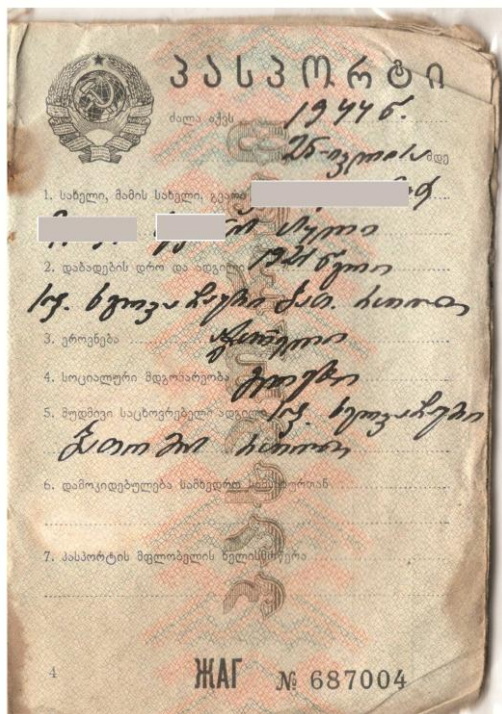 პასპორტი
ძალა აქვს 1944 წ.
25-ივლისა მდე
1. სახელი, მამის სახელი, გვარი
2. დაბადების დრო და ადგილი 1921 წელი
სოფ. ხელვაჩაური ბათ. რაიონი
3. ეროვნება ქართველი
4. სოციალური მდგომარეობა გლეხი
5. მუდმივი საცხოვრებელი ადგილი სოფ. ხელვაჩაური
ბათომის რაიონი
6. დამოკიდებულება სამხედრო სამსახურთან
7. პასპორტის მფლობელის ხელისმოწერა
4 ЖАГ № 687004